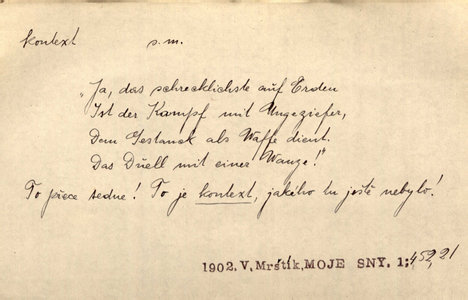 kontext s. m.
„Ja, das schrecklichste auf Erden
Ist der Kampf mit Ungeziefer,
Dem Gestanck als Waffe dient.
Das Duell mit einer Wanze!"
To přece sedne! To je kontext, jakého tu ještě nebylo!
1902. V. Mrštík, MOJE SNY. 1; 452, 21